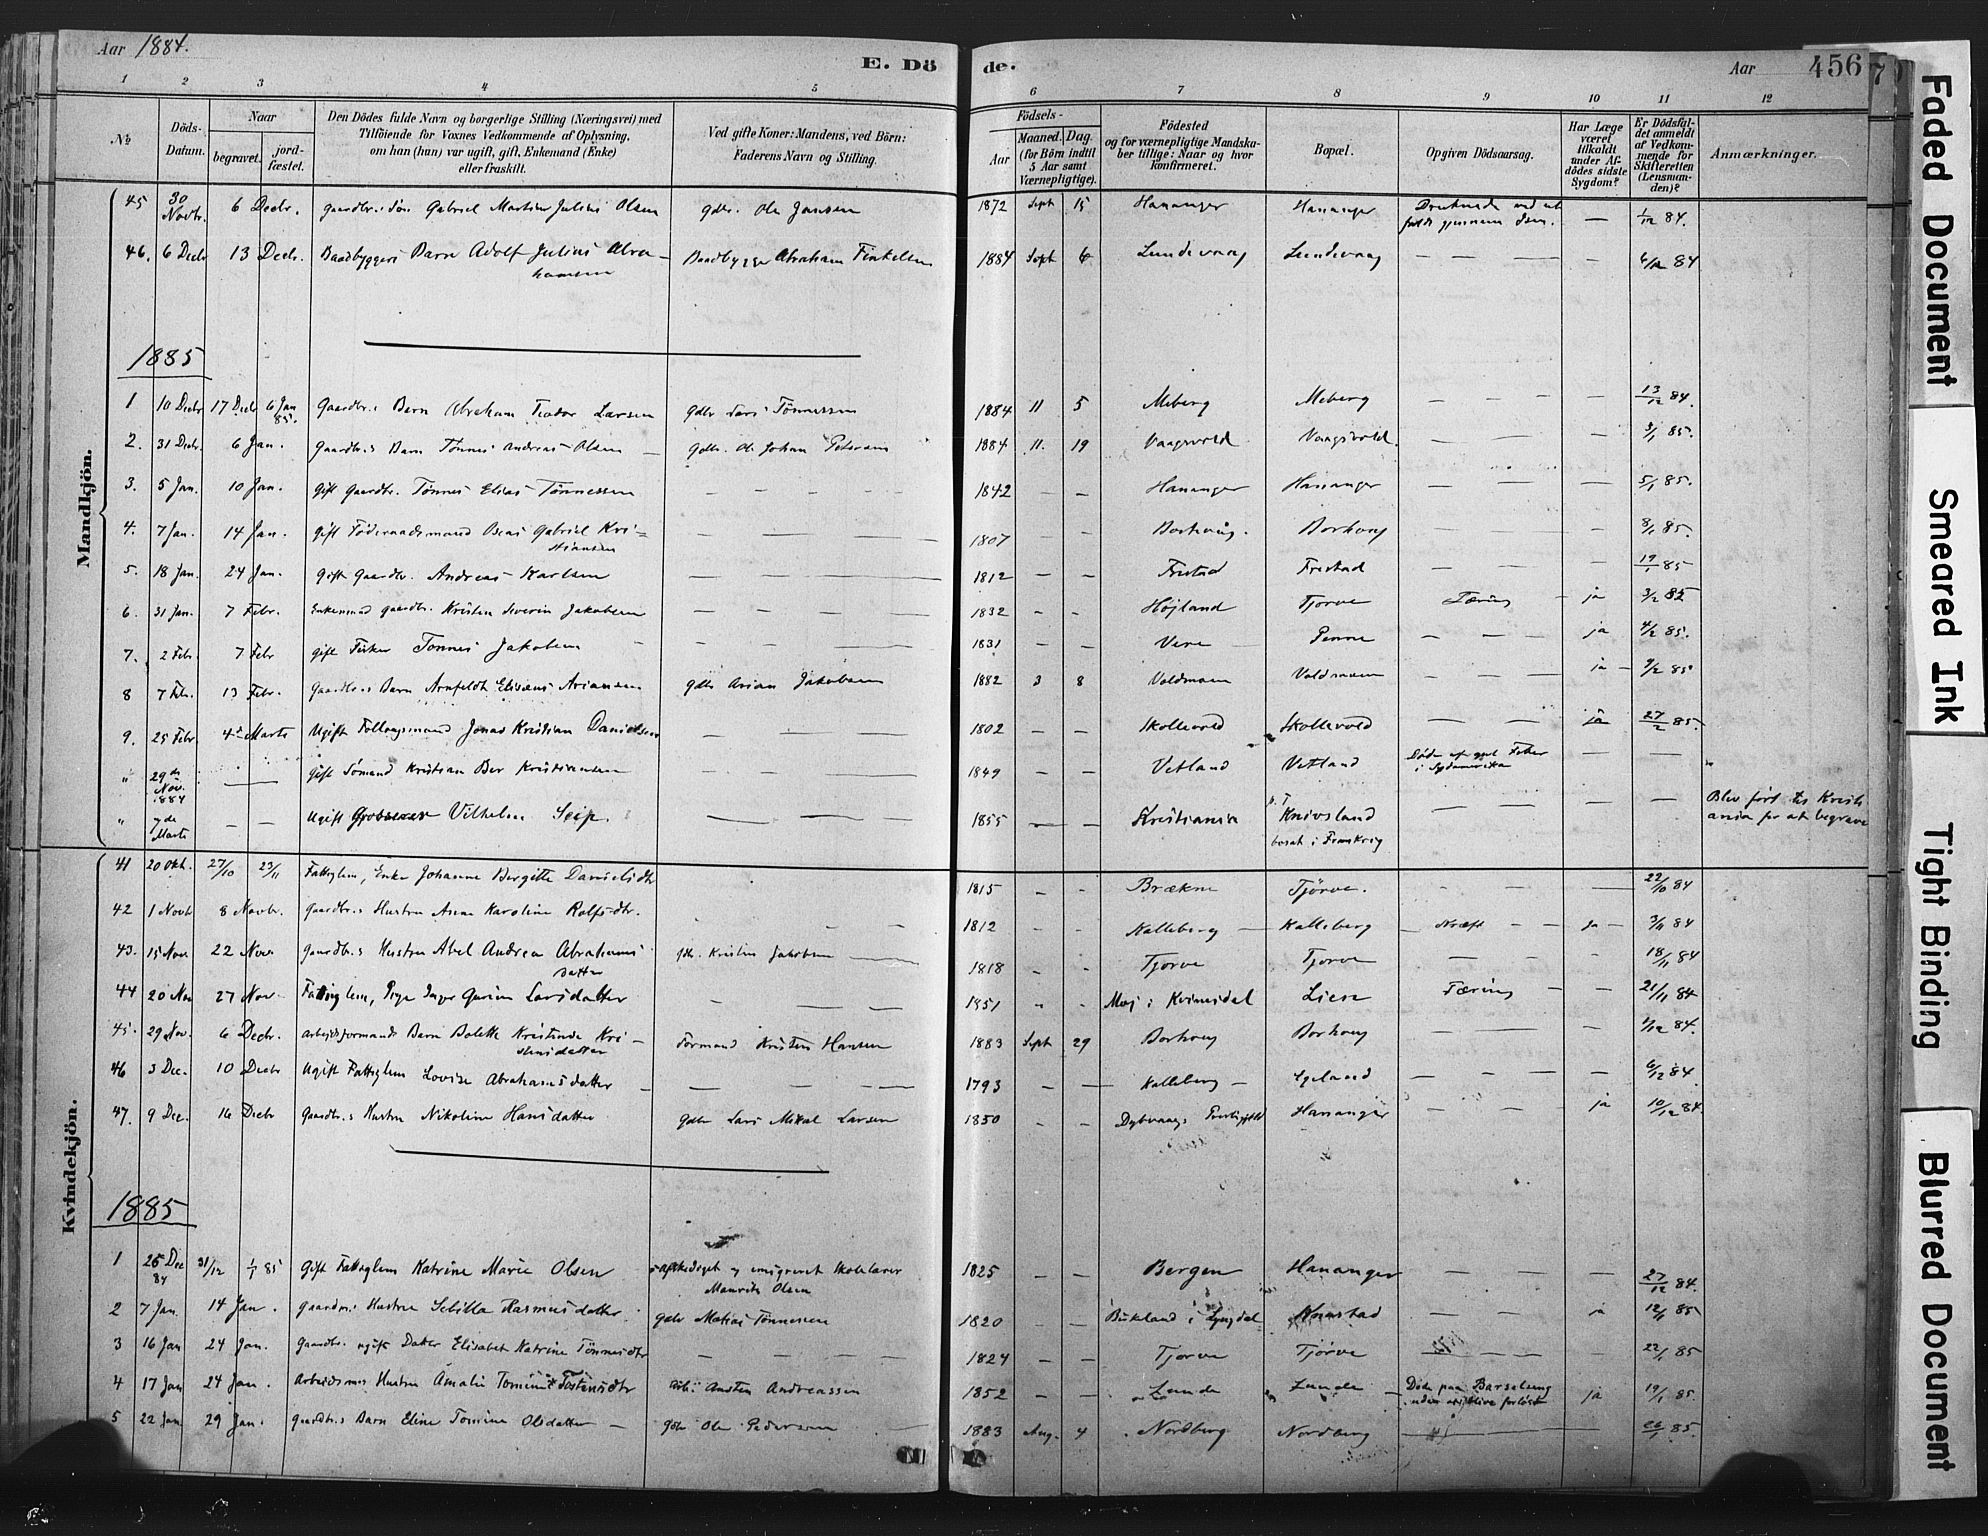 Aar 1884.
E. Dö
de.
Aar
456
7
1 2 3 4 5 6 7 8 9 10 11 12
№
Döds-Datum.
Naar
begravet.
jord-fæstet.
Den Dödes fulde Navn og borgerlige Stilling (Næringsvei) med
Tilföiende for Voxnes Vedkommende af Oplysning,
om han (hun) var ugift, gift, Enkemand (Enke)
eller fraskilt.
Ved gifte Koner: Mandens, ved Börn:
Faderens Navn og Stilling.
Födsels-
Aar
Maaned. Dag.
(for Börn indtil
5 Aar samt
Værnepligtige).
Födested
og for værnepligtige Mandska-
ber tillige: Naar og hvor
konfirmeret.
Bopæl.
Opgiven Dödsaarsag.
Har Læge
været
tilkaldt
under Af-
dödes sidste
Sygdom?
Er Dödsfal-
det anmeldt
af Vedkom-
mende for
Skifteretten
(Lensman-
den)?
Anmærkninger.
Mandkjön.
45 30 Novbr. 6 Decbr. Gaardbr.s Søn Gabriel Martin Julius Olsen Gdbr. Ole Jansen 1872 Sept 15 Hananger Hananger Druknede ved at falde gjennem Isen. — 1/12 84.
46. 6 Decbr 13 Decbr. Baadbyggers Barn Adolf Julius Abrahamsen Baadbygger Abraham Finkelsen 1884 Sept 6 Lundevaag Lundevaag — — — — — 6/12 84
1885
1 10 Decbr 17 Decbr 6 Jan 85. Gaardbr.s Barn Abraham Teodor Larsen Gdbr Lars Tönnessen 1884 11 5 Meberg Meberg — — — — 13/12 84.
2. 31 Decbr. 6 Jan. Gaardbr.s Barn Tönnes Andreas Olsen — Gdbr. Ole Johan Petersen 1884 11. 19 Vaagsvold Vaagsvold. — — — — 3/1 85.
3. 5 Jan. 10 Jan. Gift Gaardbr. Tönnes Elias Tönnessen — — — 1842 — — Hananger Hananger — — — — 5/1 85.
4. 7 Jan. 14 Jan. Gift Föderaadsmand Oseas Gabriel Kristiansen — — — 1807 — — Borhoug. Borhoug — — — 8/1 85.
5. 18 Jan. 24 Jan. Gift Gaardbr. Andreas Karlsen — — — 1812 — — Frestad Frestad — — — 19/1 85
6. 31 Jan. 7 Febr. Enkemand Gaardbr. Kristen Severin Jakobsen — — — 1832 — — Højland Tjorve Tæring — ja 3/2 85
7. 2 Febr. 7 Febr Gift Fisker Tonnes Jakobsen — — — 1831 — — Vere Penne — — — ja 4/2 85.
8 7 Febr. 13 Febr. Gaardbr.s Barn Arnfeldt Elisæus Ariansen Gdbr Arian Jakobsen 1882 3 8 Voldmoen Voldmoen — — — ja — 9/2 85
9. 25 Febr. 4 Marts Ugift Jonas Kristian Danielsen — — — 1802 — — Skollevold Skollevold — — — ja 27/2 85.
" 29de Nov. 1884 — — Gift Sømand Kristian Ber Kristiansen — — — 1849 — — Vetland Vetland Døde af gul Feber i Sydamerika — — "
" 7de Marts — — Ugift Vilhelm Seip — — — 1855 — — Kristiania p.T Knivsland bosat i Frankrig — — — — — Blev ført til Kristiania for at begrave
Kvindekjön.
41 20 Okt. 27/10 23/11 Fattiglem, Enke Johanne Bergitte Danielsdtr 1815 — — Brækne Tjörve. — — — — 22/10 84
42 1 Novb 8 Novbr. Gaardbr.s Hustru Anne Karoline Rolfsdtr. — — 1812 Kalleberg — Kalleberg — Kræft — — Ja — 3/11 84
43. 15 Nov. 22 Nov. Gaardbr.s Hustru Abel Andrea Abrahamsdatter Gdbr. Kristen Jakobsen — 1818 — — Tjorve Tjorve — — — 18/11 84
44 20 Nov 27 Nov. Fattiglem, Pige Inger Gurine Larsdatter — — — 1851 " — Moj i Kvinesdal Liene Tæring — — 21/11 84
45. 29 Nov. 6 Decbr. Arbejdsformands Barn Bolette Kristinde Kristensdatter Formand Kristen Hansen 1883 Sept 29 Borhoug Borhoug — — — — 1/12 84.
46 3 Dec. 10 Decbr Ugift Fattiglem Lovise Abrahamsdatter — — — — 1793 — — Kalleberg — Egeland — — — — 6/12 84.
47. 9 Dec. 16 Decbr Gaardbr.s Hustru Nikoline Hansdatter Gdbr Lars Mikal Larsen 1850 — — Dybvaags Præstegjeld Hananger — — — ja 10/12 84.
1885
1 25 Dec 84 31/12 1/1 85 Gift Fattiglem Katrine Marie Olsen afskediget og emigreret Skolelærer Maurits Olsen 1825 — — Bergen Hananger — — — — 27/12 84.
2 7 Jan. 14 Jan. Gaardbr.s Hustru Sebilla Rasmusdatter. Gdbr Matias Tönnessen 1820 — — Bukland i Lyngdal — — ja 12/1 85
3 16 Jan 24 Jan. Gaardbr. ugift Datter Elisabet Katrine Tönnesdtr — — — 1824 — — Tjorve Tjörve — — — — 22/1 85
4 17 Jan 24 Jan. Arbeidsmds Hustru Amalie Tomine Tostensdtr Arb: Austen Andreassen 1852 — — Lunde Lunde — Døde paa Barselseng uden at blive forløst ja 19/1 85.
5 22 Jan 29 Jan. Gaardbr.s Barn Eline Tomine Olsdatter — Gdbr Ole Pedersen 1883 Aug. 4 Nordberg Nordberg — — — 26/1 85.
Faded Document
Smeared Ink
Tight Binding
Blurred Document